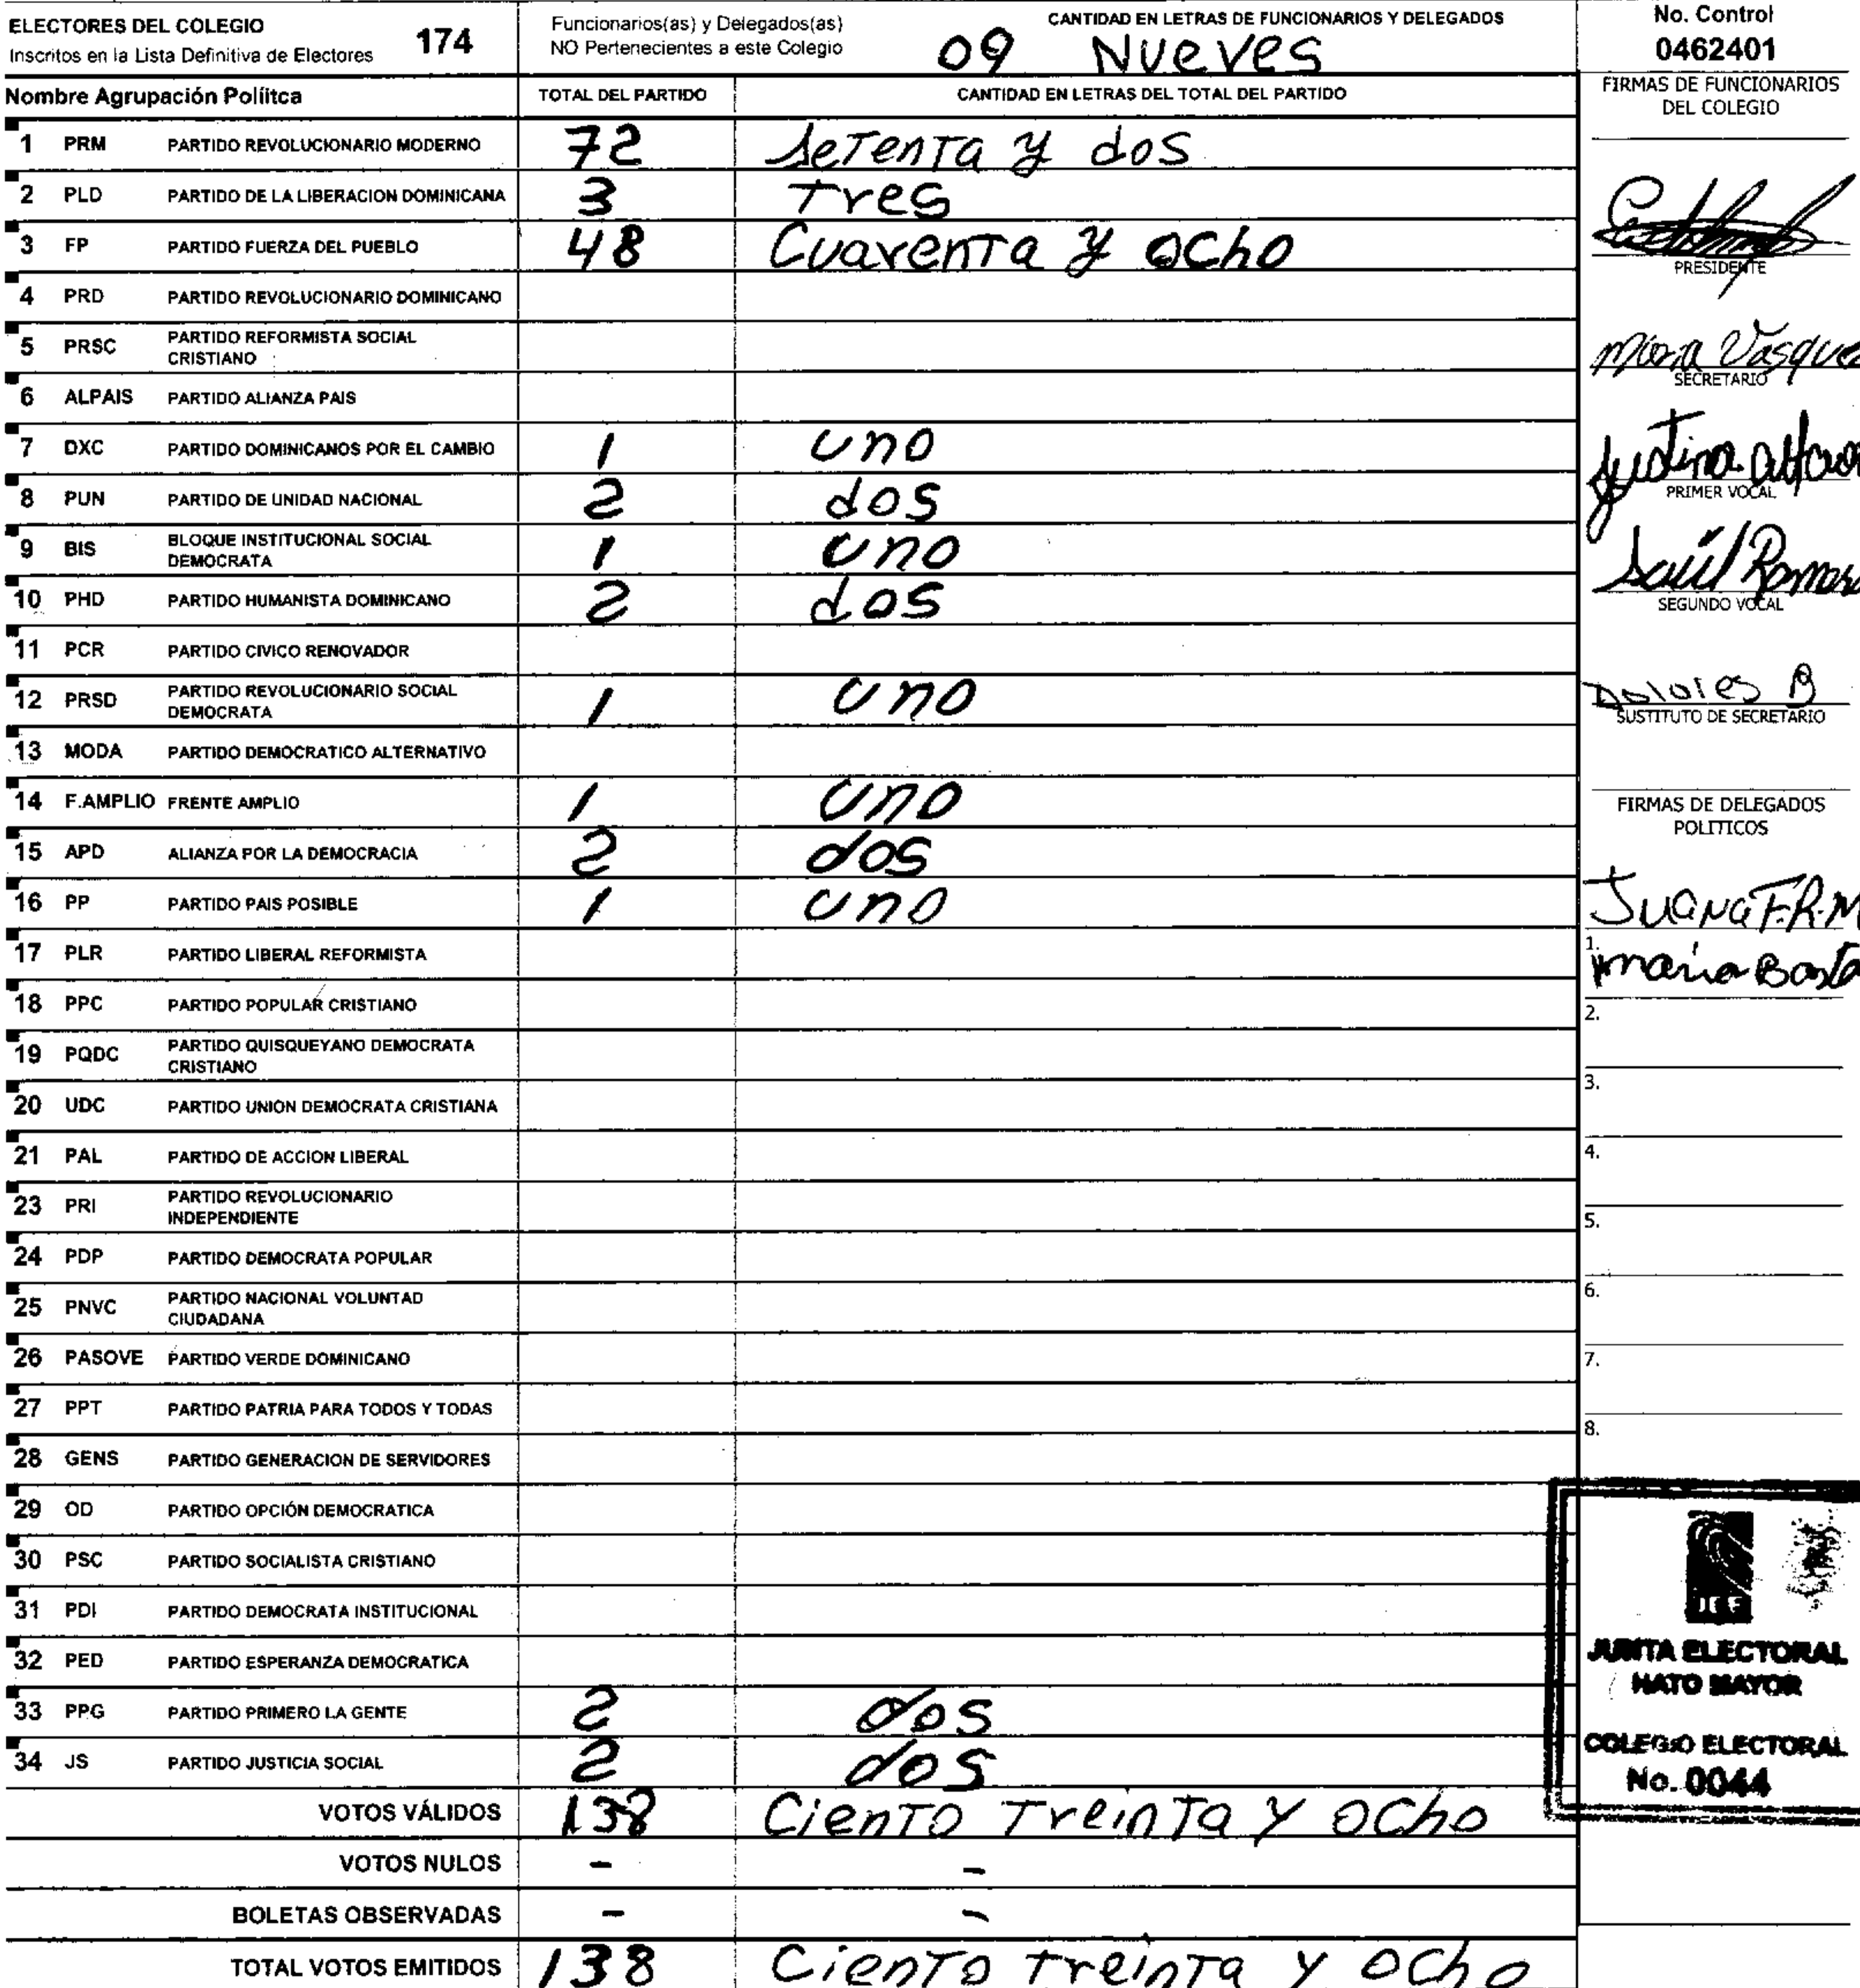 ELECTORES DEL COLEGIO
Inscritos en la Lista Definitiva de Electores 174
Funcionarios(as) y Delegados(as)
NO Pertenecientes a este Colegio
CANTIDAD EN LETRAS DE FUNCIONARIOS Y DELEGADOS
09 Nueves
No. Control
0462401
Nombre Agrupación Poliitca TOTAL DEL PARTIDO CANTIDAD EN LETRAS DEL TOTAL DEL PARTIDO
1 PRM PARTIDO REVOLUCIONARIO MODERNO 72 Setenta y dos
2 PLD PARTIDO DE LA LIBERACION DOMINICANA 3 Tres
3 FP PARTIDO FUERZA DEL PUEBLO 48 Cuarenta y ocho
4 PRD PARTIDO REVOLUCIONARIO DOMINICANO
5 PRSC PARTIDO REFORMISTA SOCIAL
CRISTIANO
6 ALPAIS PARTIDO ALIANZA PAIS
7 DXC PARTIDO DOMINICANOS POR EL CAMBIO 1 uno
8 PUN PARTIDO DE UNIDAD NACIONAL 2 dos
9 BIS BLOQUE INSTITUCIONAL SOCIAL
DEMOCRATA 1 uno
10 PHD PARTIDO HUMANISTA DOMINICANO 2 dos
11 PCR PARTIDO CIVICO RENOVADOR
12 PRSD PARTIDO REVOLUCIONARIO SOCIAL
DEMOCRATA 1 uno
13 MODA PARTIDO DEMOCRATICO ALTERNATIVO
14 F.AMPLIO FRENTE AMPLIO 1 uno
15 APD ALIANZA POR LA DEMOCRACIA 2 dos
16 PP PARTIDO PAIS POSIBLE 1 uno
17 PLR PARTIDO LIBERAL REFORMISTA
18 PPC PARTIDO POPULAR CRISTIANO
19 PQDC PARTIDO QUISQUEYANO DEMOCRATA
CRISTIANO
20 UDC PARTIDO UNION DEMOCRATA CRISTIANA
21 PAL PARTIDO DE ACCION LIBERAL
23 PRI PARTIDO REVOLUCIONARIO
INDEPENDIENTE
24 PDP PARTIDO DEMOCRATA POPULAR
25 PNVC PARTIDO NACIONAL VOLUNTAD
CIUDADANA
26 PASOVE PARTIDO VERDE DOMINICANO
27 PPT PARTIDO PATRIA PARA TODOS Y TODAS
28 GENS PARTIDO GENERACION DE SERVIDORES
29 OD PARTIDO OPCIÓN DEMOCRATICA
30 PSC PARTIDO SOCIALISTA CRISTIANO
31 PDI PARTIDO DEMOCRATA INSTITUCIONAL
32 PED PARTIDO ESPERANZA DEMOCRATICA
33 PPG PARTIDO PRIMERO LA GENTE 2 dos
34 JS PARTIDO JUSTICIA SOCIAL 2 dos
VOTOS VÁLIDOS 138 Ciento Treinta y ocho
VOTOS NULOS - -
BOLETAS OBSERVADAS - -
TOTAL VOTOS EMITIDOS 138 Ciento treinta y ocho
FIRMAS DE FUNCIONARIOS
DEL COLEGIO
PRESIDENTE
Vasquez
SECRETARIO
Justina
PRIMER VOCAL
Saúl Romero
SEGUNDO VOCAL
Dolores B
SUSTITUTO DE SECRETARIO
FIRMAS DE DELEGADOS
POLITICOS
Juana F.R.M
1.
maria
2.
3.
4.
5.
6.
7.
8.
JCE
JUNTA ELECTORAL
HATO MAYOR
COLEGIO ELECTORAL
No. 0044